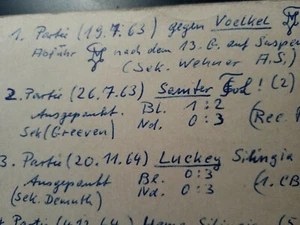 1. Partie (19.7.63) gegen Voelkel
Abfuhr nach dem 13. G. auf Suspen
(Sek. Wehner A.S.)
2. Partie (26.7.63) Semter ! (2)
Ausgepaukt Bl. 1:2
Sek (Greeven) Nd. 0:3 (Rec.
3. Partie (20.11.64) Luckey Silingia
Ausgepaukt Bl. 0:3 (1. CB
(Sek. Demuth) Nd. 0:3
Partie (4.12.64) Silingia (5